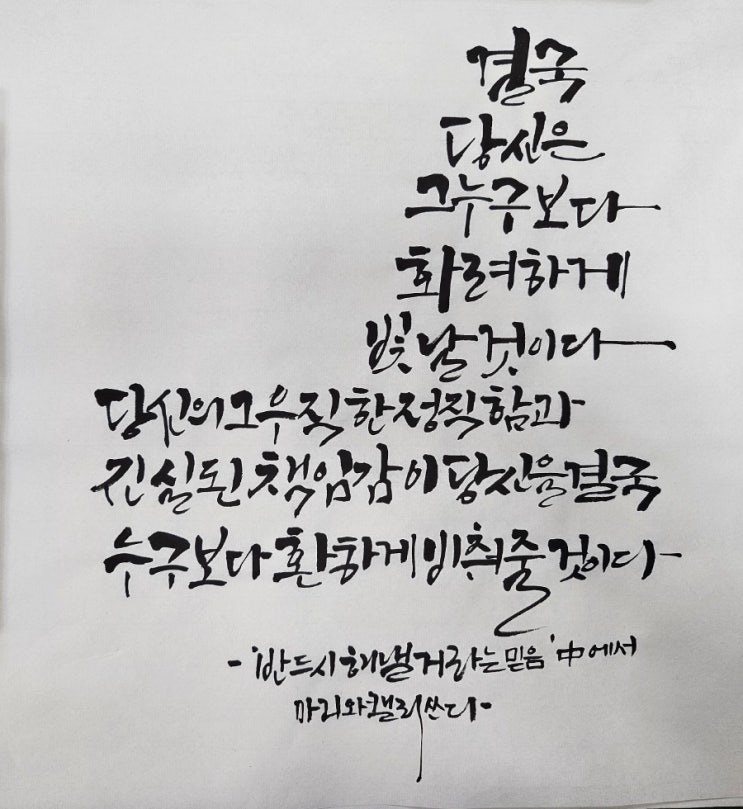 결국
당신은
그 누구보다
화려하게
빛날 것이다
당신의 그 우직한 정직함과
진실된 책임감이 당신을 결국
누구보다 환하게 비춰줄 것이다
- '반드시 해낼거라는 믿음' 中에서
마리와캘리 쓴다 -